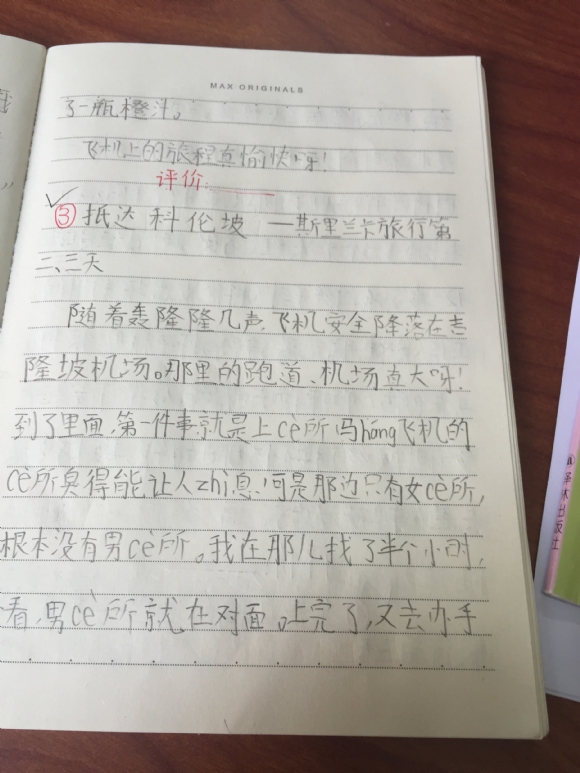 MAX ORIGINALS
了一瓶橙汁。
飞机上的旅程真愉快呀!
评价:
③抵达科伦坡 —斯里兰卡旅行第
二、三天
随着轰隆隆几声,飞机安全降落在吉
隆坡机场。那里的跑道、机场真大呀!
到了里面,第一件事就是上cè所,马háng飞机的
cè所臭得能让人zhì息!可是那边只有女cè所,
根本没有男cè所。我在那儿找了半个小时,
看,男cè所就在对面。上完了,又去办手
译林出版社